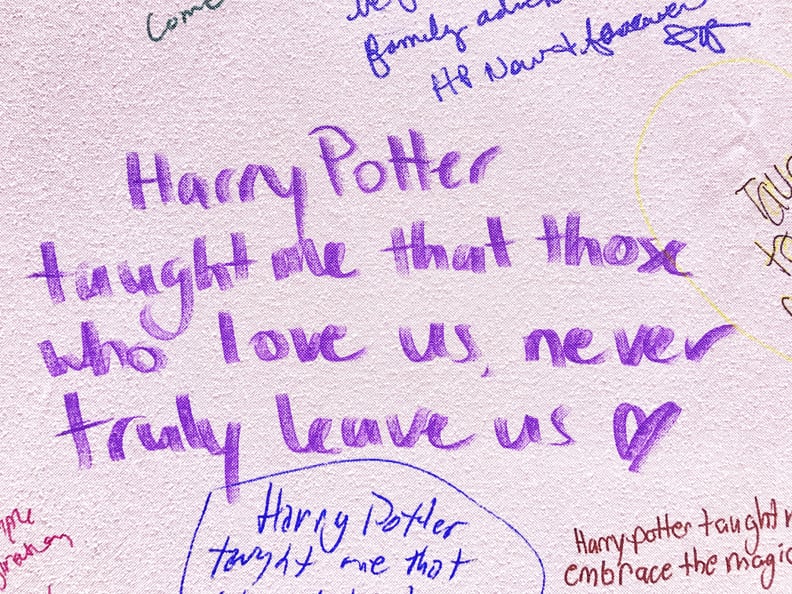 Come
family
HP Now & forever
Harry Potter
taught me that those
who love us, never
truly leave us ♡
Harry Potter
taught me that
Harry potter taught
embrace the magic